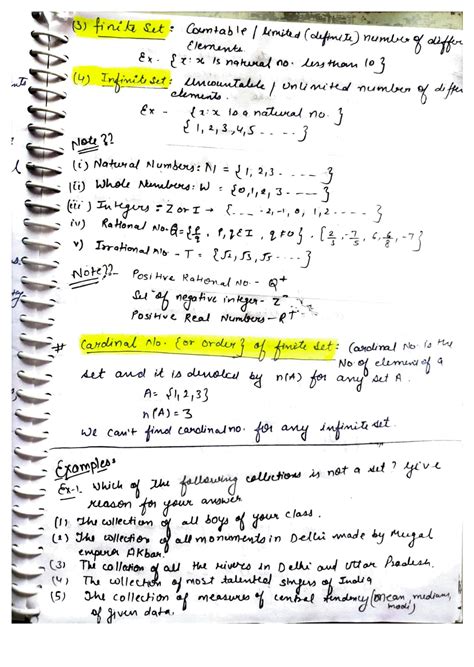 (3) finite set : Countable / limited (definite) number of differ
Elements
Ex - {x : x is natural no. less than 10}
(4) Infinite set : Uncountable / unlimited number of differ
elements.
Ex - {x : x is a natural no. }
{1, 2, 3, 4, 5 - - - - }
Note }}
(i) Natural Numbers : N = {1, 2, 3 - - - - - }
(ii) Whole Numbers : W = {0, 1, 2, 3 - - - - }
(iii) Integers = Z or I → {- - - -2, -1, 0, 1, 2 - - - - }
iv) Rational No - Q = {p/q, p, q ∈ I, q ≠ 0}
v) Irrational No - T = {√2, √3, √5 - - - - }
Note}} - Positive Rational No - Q⁺
Set of negative integer - Z⁻
Positive Real Numbers - R⁺
# Cardinal No. {or order} of finite set : Cardinal No is the
No of element of a
set and it is denoted by n(A) for any set A.
A = {1, 2, 3}
n(A) = 3
We can't find cardinal no. for any infinite set.
Examples
Ex-1. Which of the following collections is not a set ? give
reason for your answer
(1) The collection of all boys of your class.
(2) The collection of all monuments in Delhi made by Mugal
emperor Akbar.
(3) The collection of all the rivers in Delhi and Uttar Pradesh.
(4) The collection of most talented singers of India
(5) The collection of measures of central tendency (Mean, medians,
mode)
of given data.